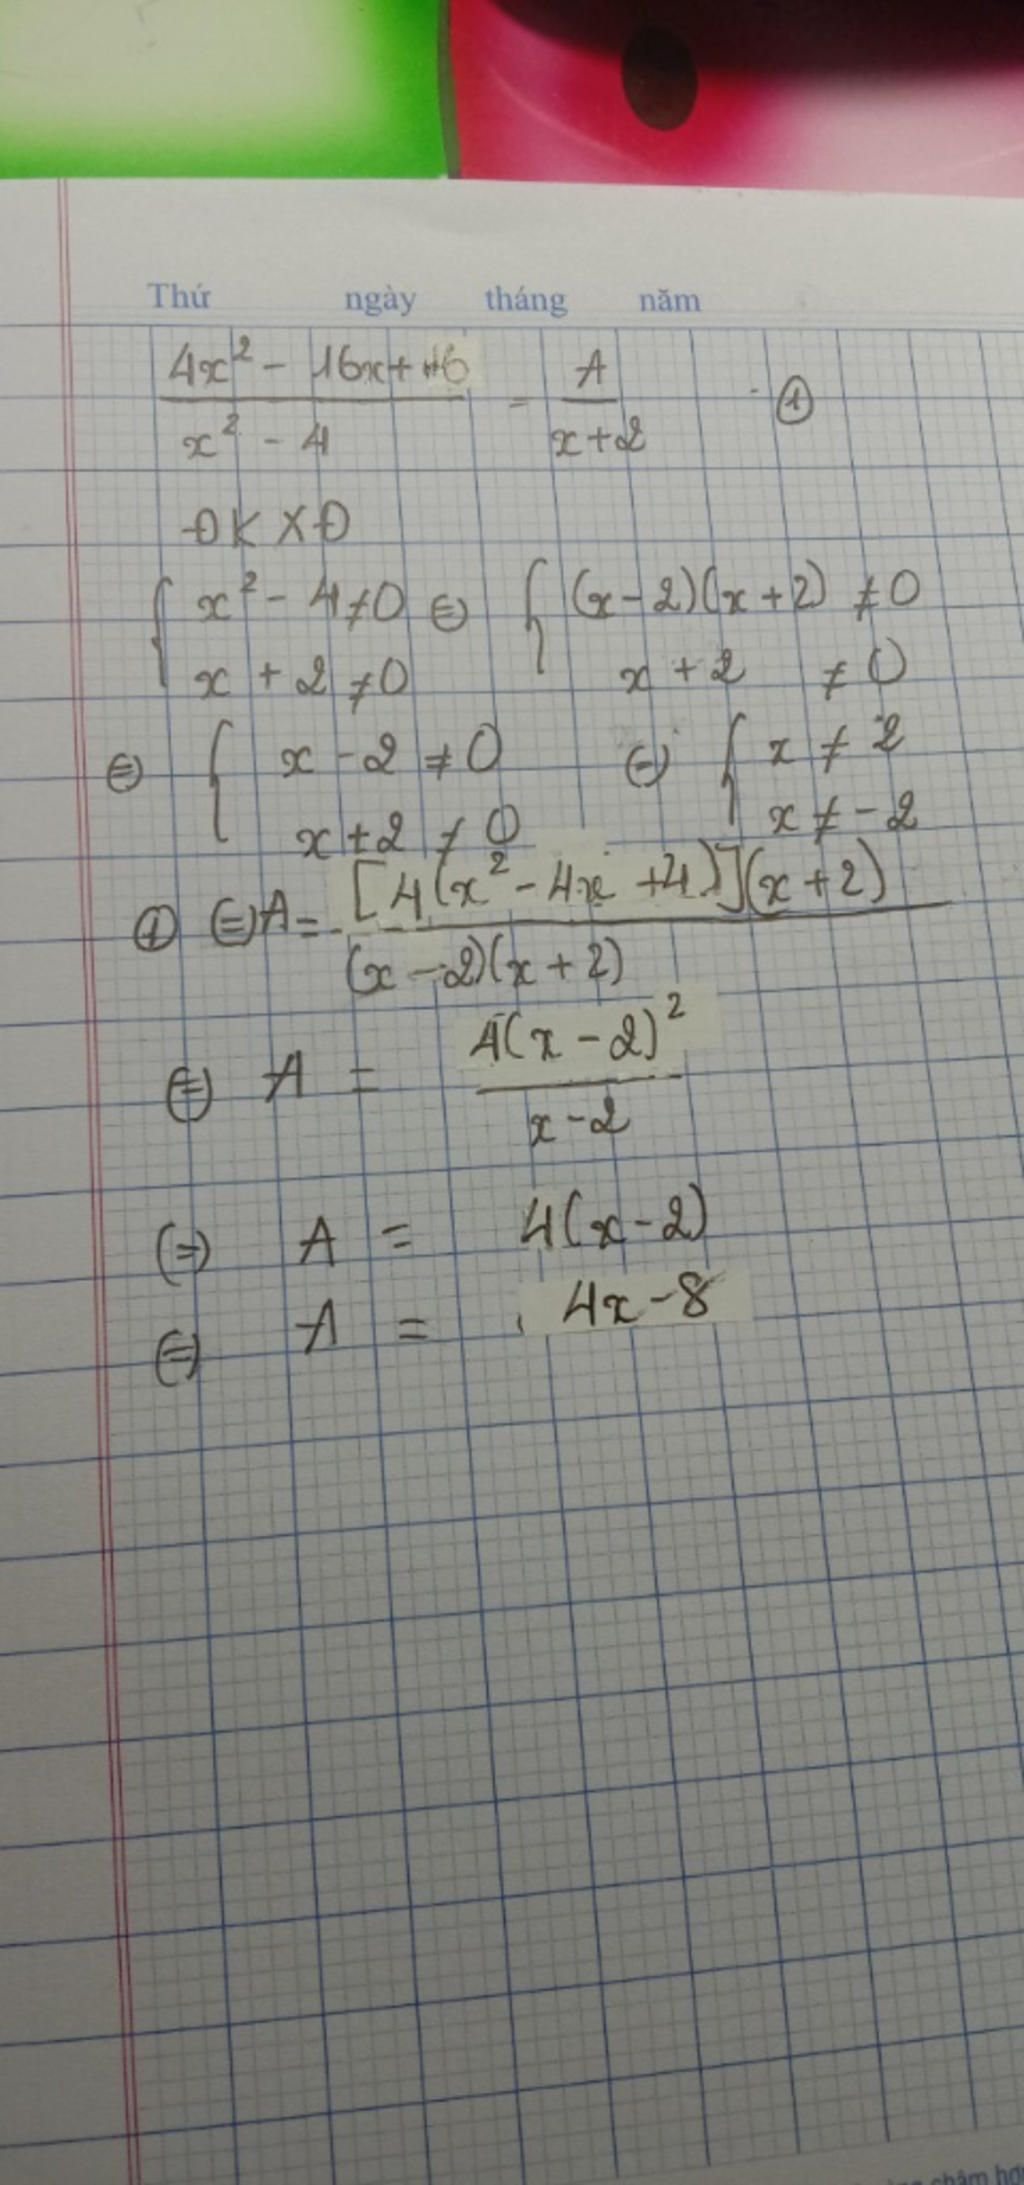 Thứ ngày tháng năm
4x² - 16x + 16 / x² - 4 = A / x + 2 ①
ĐKXĐ
{ x² - 4 ≠ 0 ⇔ { (x - 2)(x + 2) ≠ 0
x + 2 ≠ 0 x + 2 ≠ 0
⇔ { x - 2 ≠ 0 ⇔ { x ≠ 2
x + 2 ≠ 0 x ≠ - 2
① ⇔ A = [4(x² - 4x + 4)](x + 2) / (x - 2)(x + 2)
⇔ A = 4(x - 2)² / x - 2
⇔ A = 4(x - 2)
⇔ A = 4x - 8